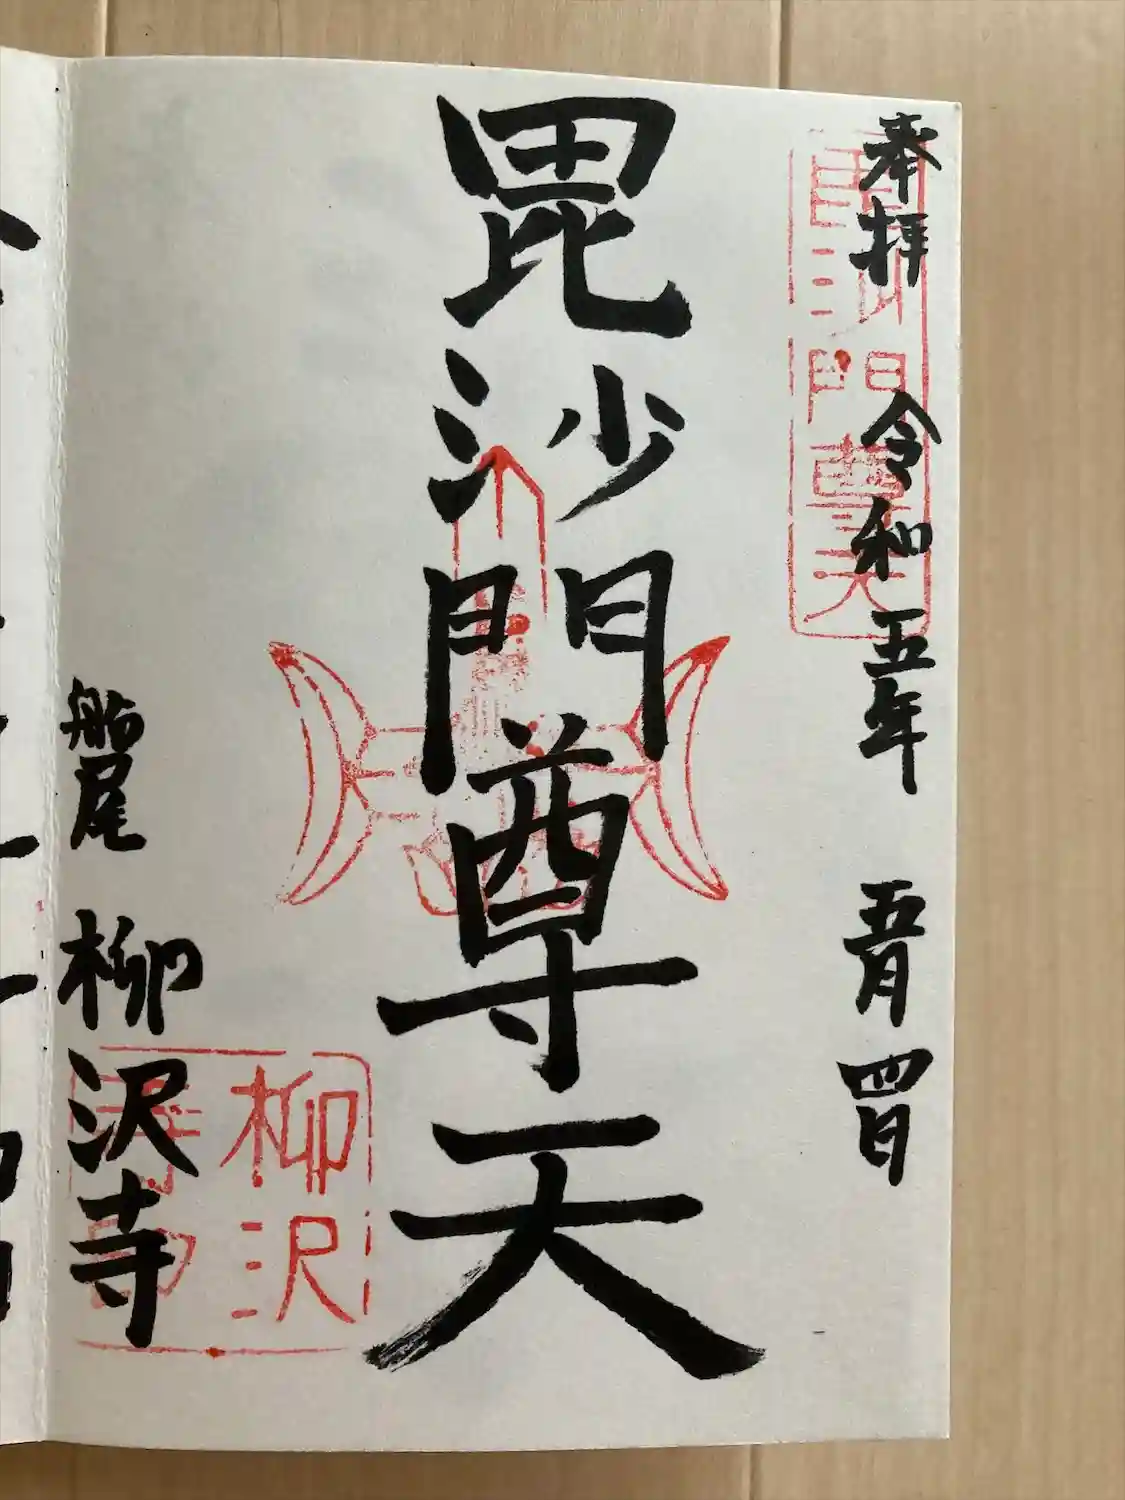 奉拝 令和五年 五月 四日
毘沙門尊天
毘沙門尊天
船尾 柳沢寺
柳沢
寺印